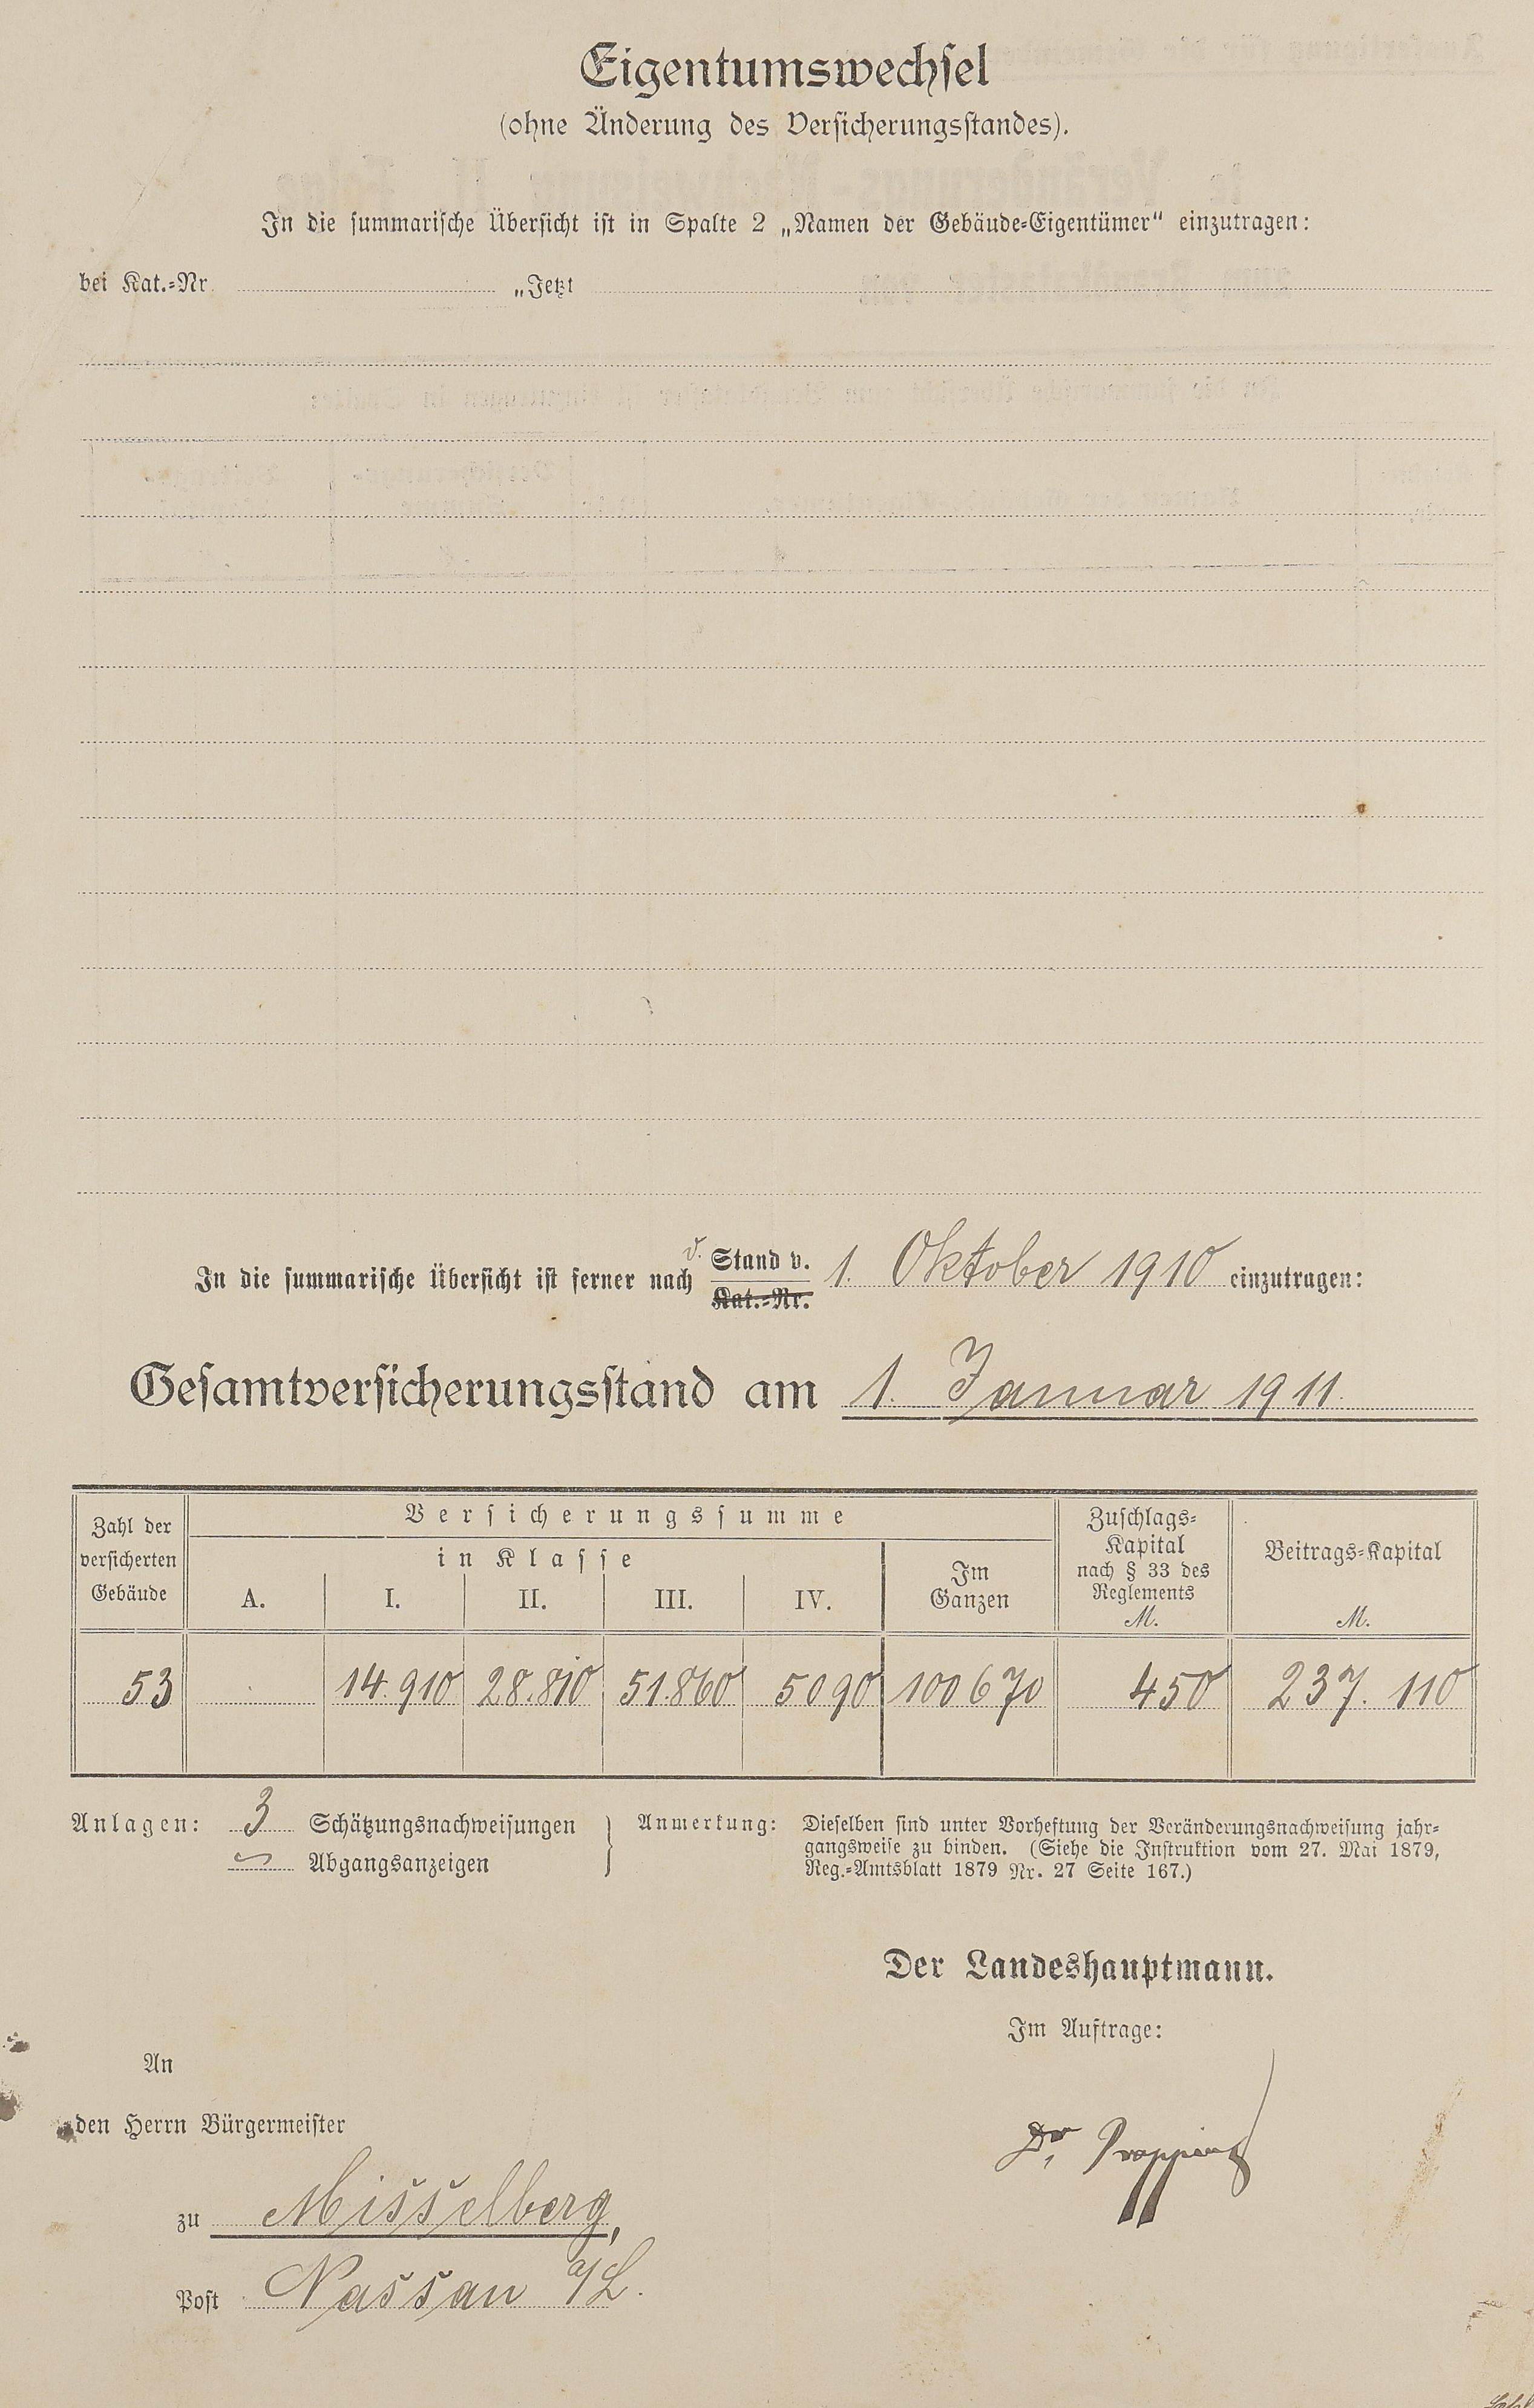 Eigentumswechsel
(ohne Änderung des Versicherungsstandes).
In die summarische Übersicht ist in Spalte 2 „Namen der Gebäude-Eigentümer“ einzutragen:
bei Kat.-Nr. „Jetzt
In die summarische Übersicht ist ferner nach d. Stand v. 1. Oktober 1910 einzutragen:
Kat.-Nr.
Gesamtversicherungsstand am 1. Januar 1911.
Zahl der versicherten Gebäude
Versicherungssumme
in Klasse
A. I. II. III. IV.
Im Ganzen
Zuschlags-Kapital nach § 33 des Reglements M.
Beitrags-Kapital M.
53 14.910 28.810 51.860 5090 100670 450 237.110
Anlagen: 3 Schätzungsnachweisungen
Abgangsanzeigen
Anmerkung: Dieselben sind unter Vorheftung der Veränderungsnachweisung jahr-
gangsweise zu binden. (Siehe die Instruktion vom 27. Mai 1879,
Reg.-Amtsblatt 1879 Nr. 27 Seite 167.)
Der Landeshauptmann.
Im Auftrage:
Dr.
An
den Herrn Bürgermeister
zu Misselberg,
Post Nassau a/L.